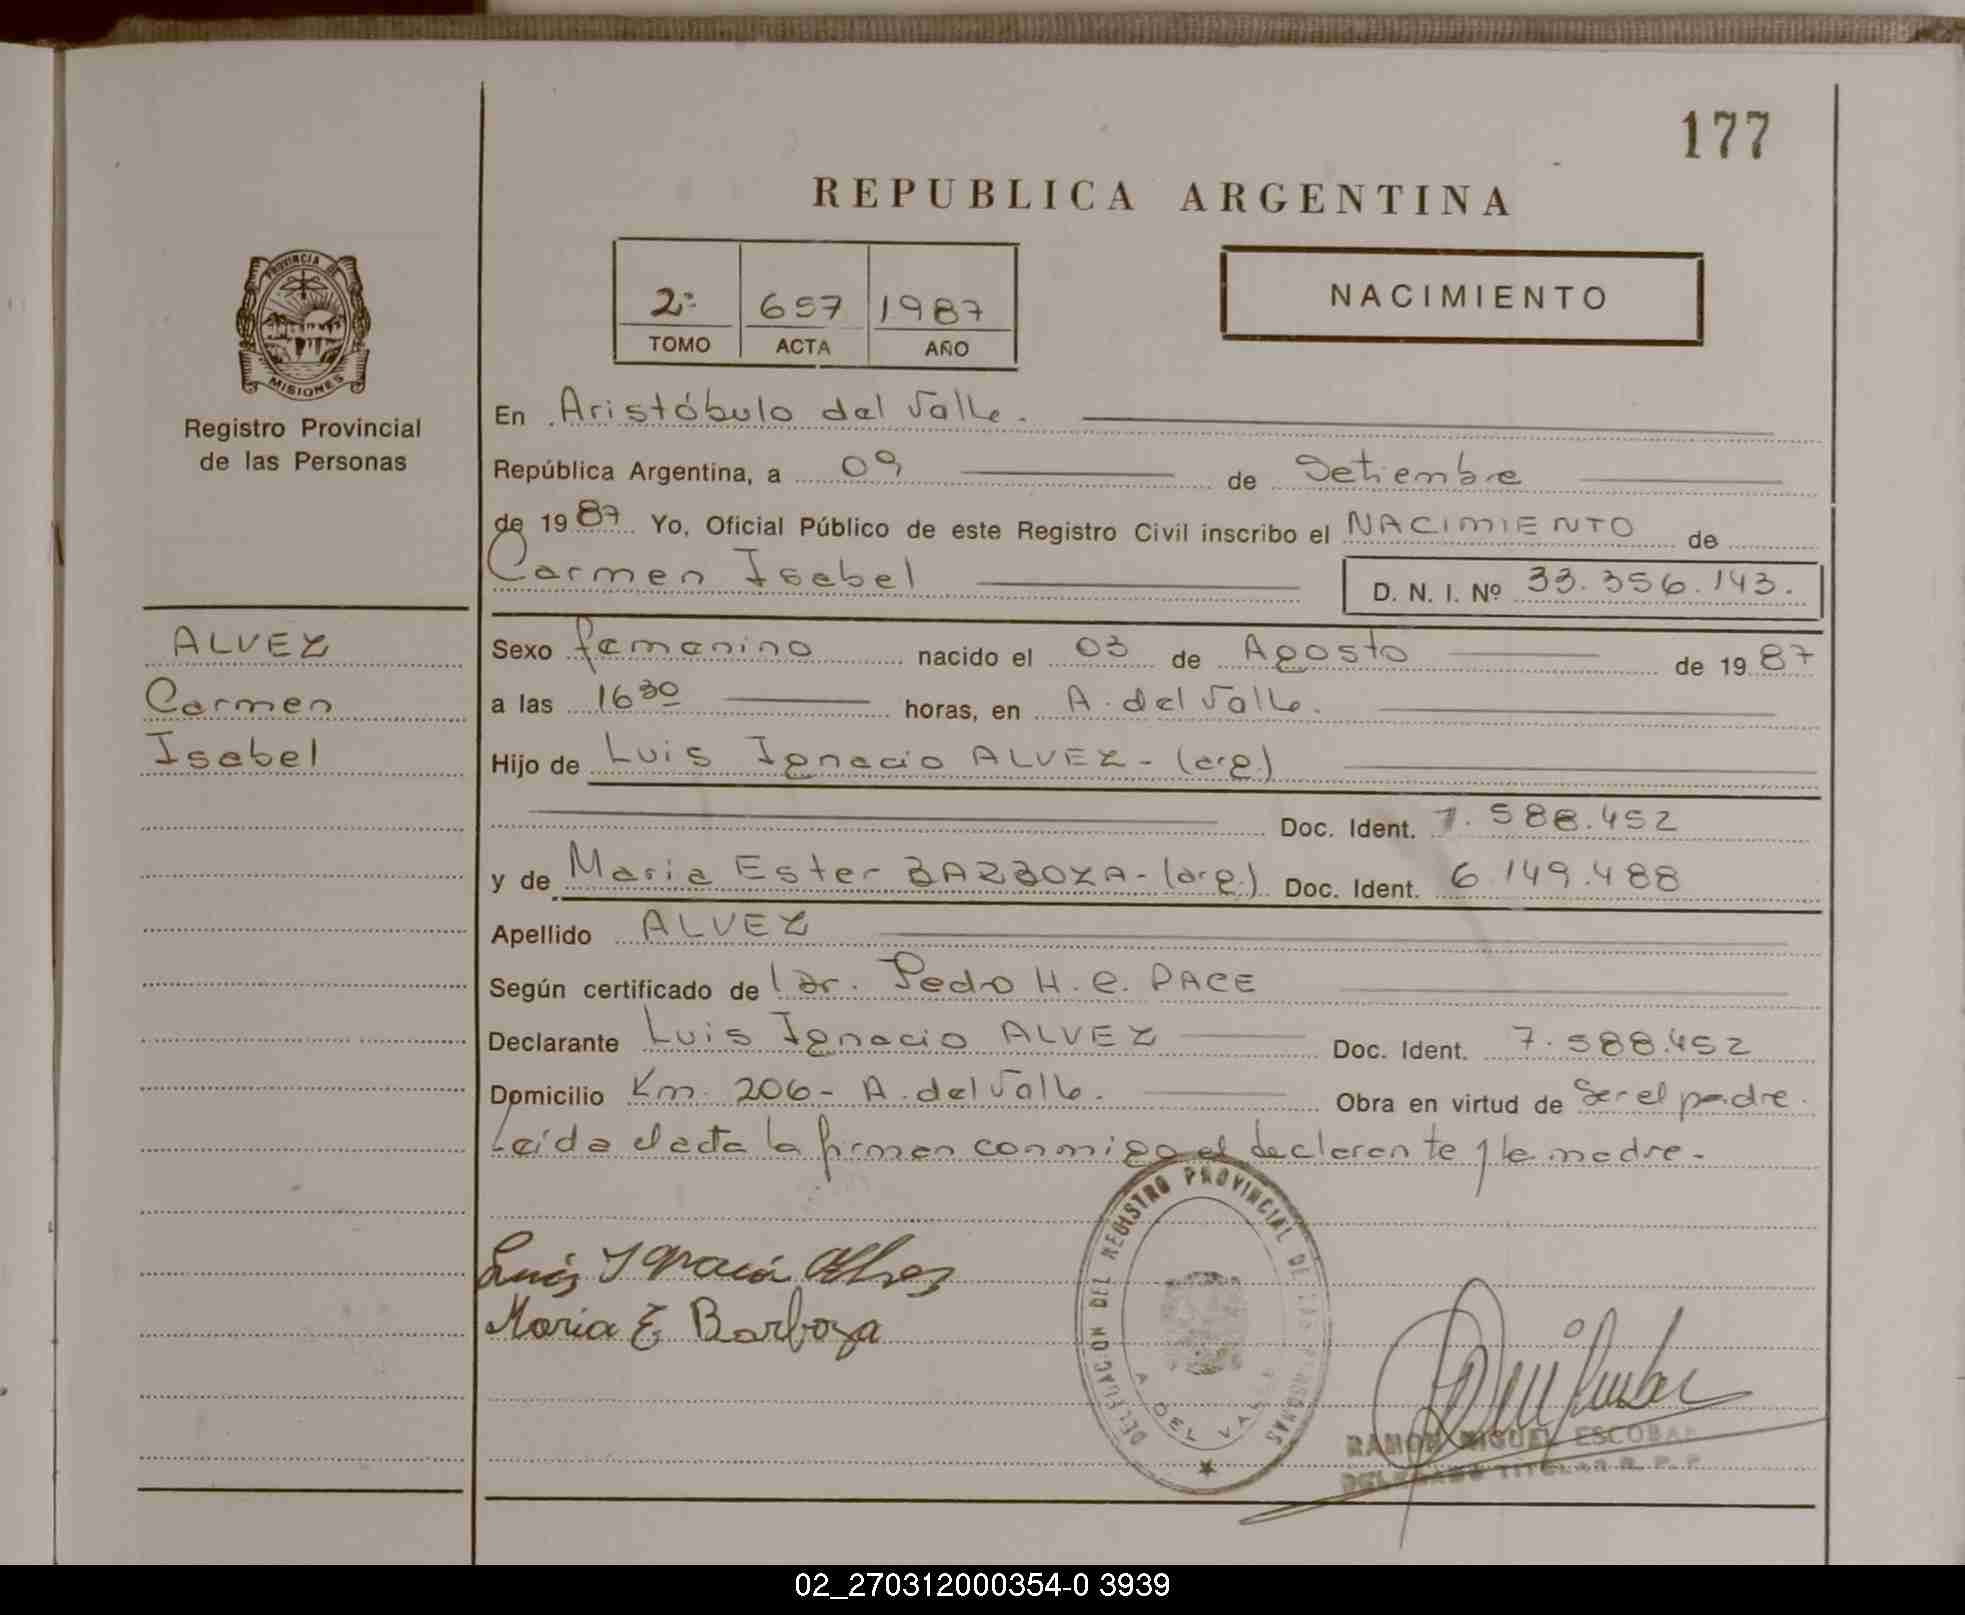 177
REPUBLICA ARGENTINA
2º 657 1987
TOMO ACTA AÑO
NACIMIENTO
PROVINCIA DE
MISIONES
Registro Provincial
de las Personas
ALVEZ
Carmen
Isabel
En Aristóbulo del Valle.
República Argentina, a 09 de Setiembre
de 1987 Yo, Oficial Público de este Registro Civil inscribo el NACIMIENTO de
Carmen Isabel D. N. I. Nº 33.356.143.
Sexo femenino nacido el 03 de Agosto de 1987
a las 16 30 horas, en A. del Valle.
Hijo de Luis Ignacio ALVEZ - (arg.)
Doc. Ident. 7.588.452
y de Maria Ester BARBOZA - (arg.) Doc. Ident. 6.149.488
Apellido ALVEZ
Según certificado de Dr. Pedro H. C. PACE
Declarante Luis Ignacio ALVEZ Doc. Ident. 7.588.452
Domicilio Km. 206 - A. del Valle. Obra en virtud de Ser el padre.
Leída el acta la firman conmigo el declarante y la madre.
Luis Ignacio Alvez
Maria E. Barboza
DELEGACION DEL REGISTRO PROVINCIAL DE LAS PERSONAS
A. DEL VALLE
RAMON MIGUEL ESCOBAR
DELEGADO TITULAR R. P. P.
02_270312000354-0 3939